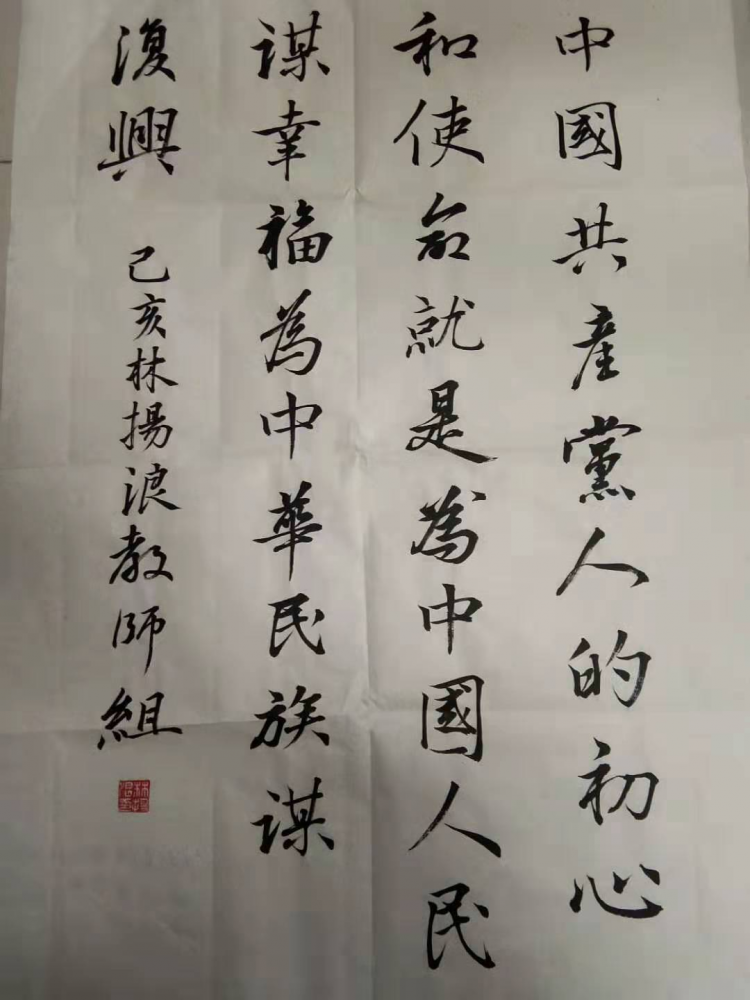 中國共產黨人的初心
和使命就是為中國人民
謀幸福為中華民族謀
復興 己亥林揚浪教師組